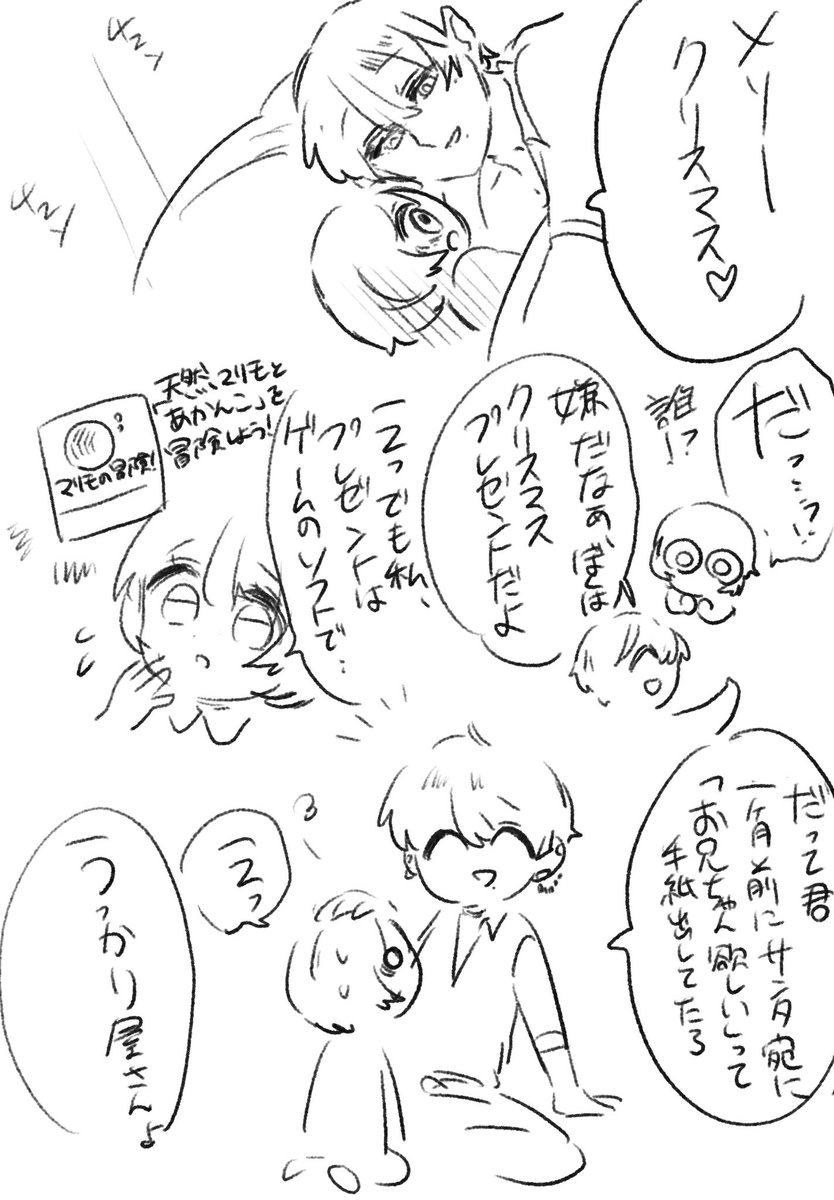 メリー
クリスマス♡
だっ…!?
誰!?
嫌だなぁ、ぼくは
クリスマス
プレゼントだよ
えっでも私、
プレゼントは
ゲームのソフトで…
天然マリモと
「あかんこ」を
冒険しよう!
マリモの冒険!
だって君
一ヶ月前にサンタ宛に
「お兄ちゃん欲しい」って
手紙出してたろ
えっ
うっかり屋さんよ